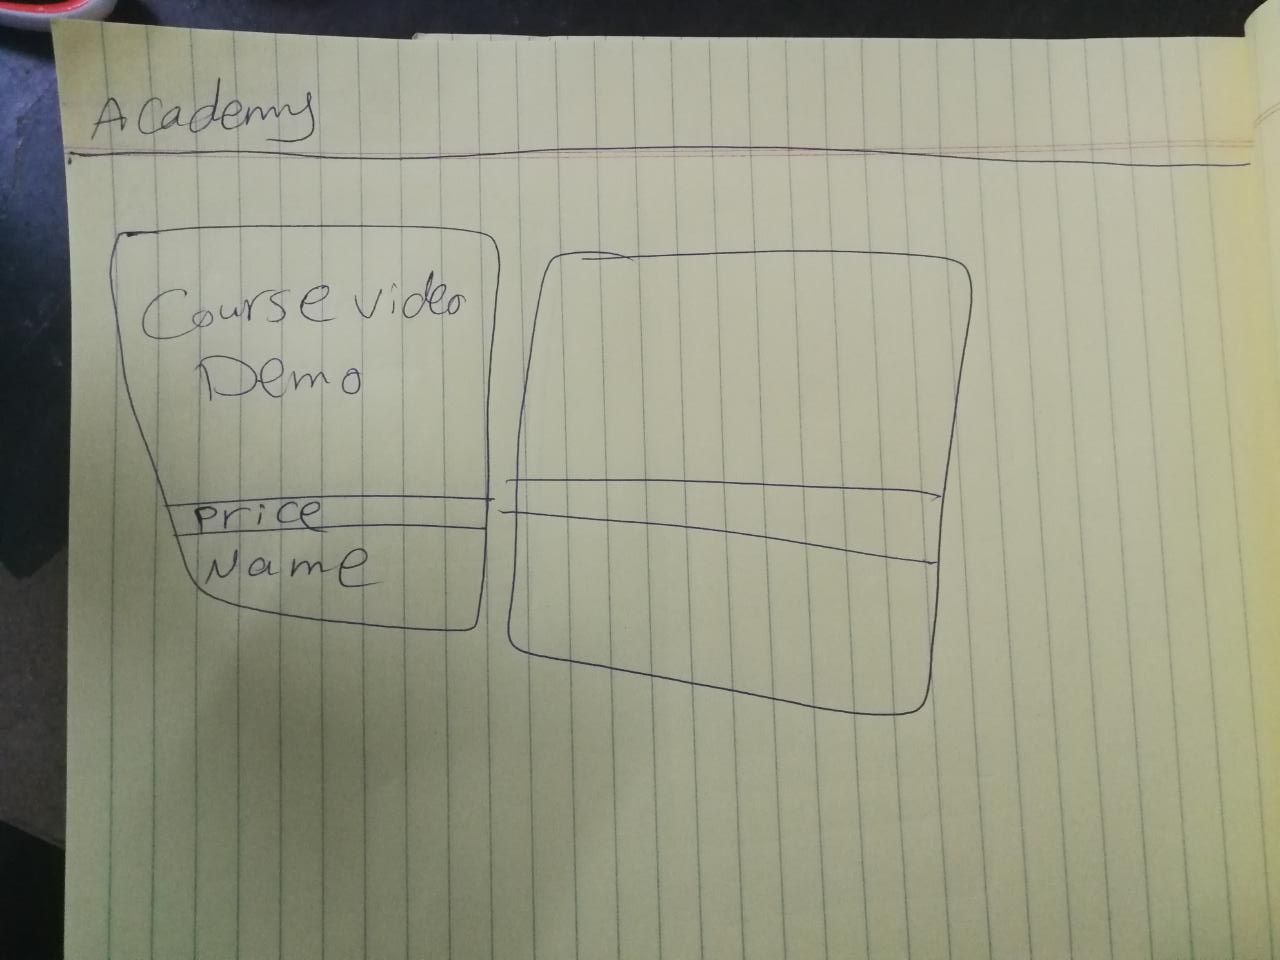 Academy
Course video
Demo
Price
Name